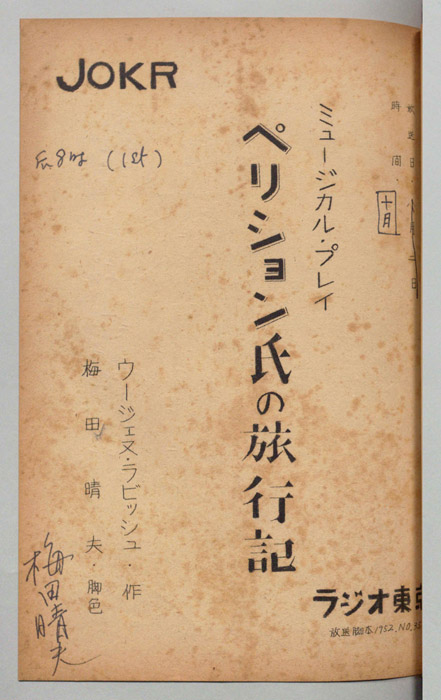 JOKR
放送日・
時間
十月
ミュージカル・プレイ
ペリション氏の旅行記
ウージェヌ・ラビッシュ・作
梅田晴夫・脚色
梅田晴夫
(1st)
ラジオ東京
放送脚本1952.NO.